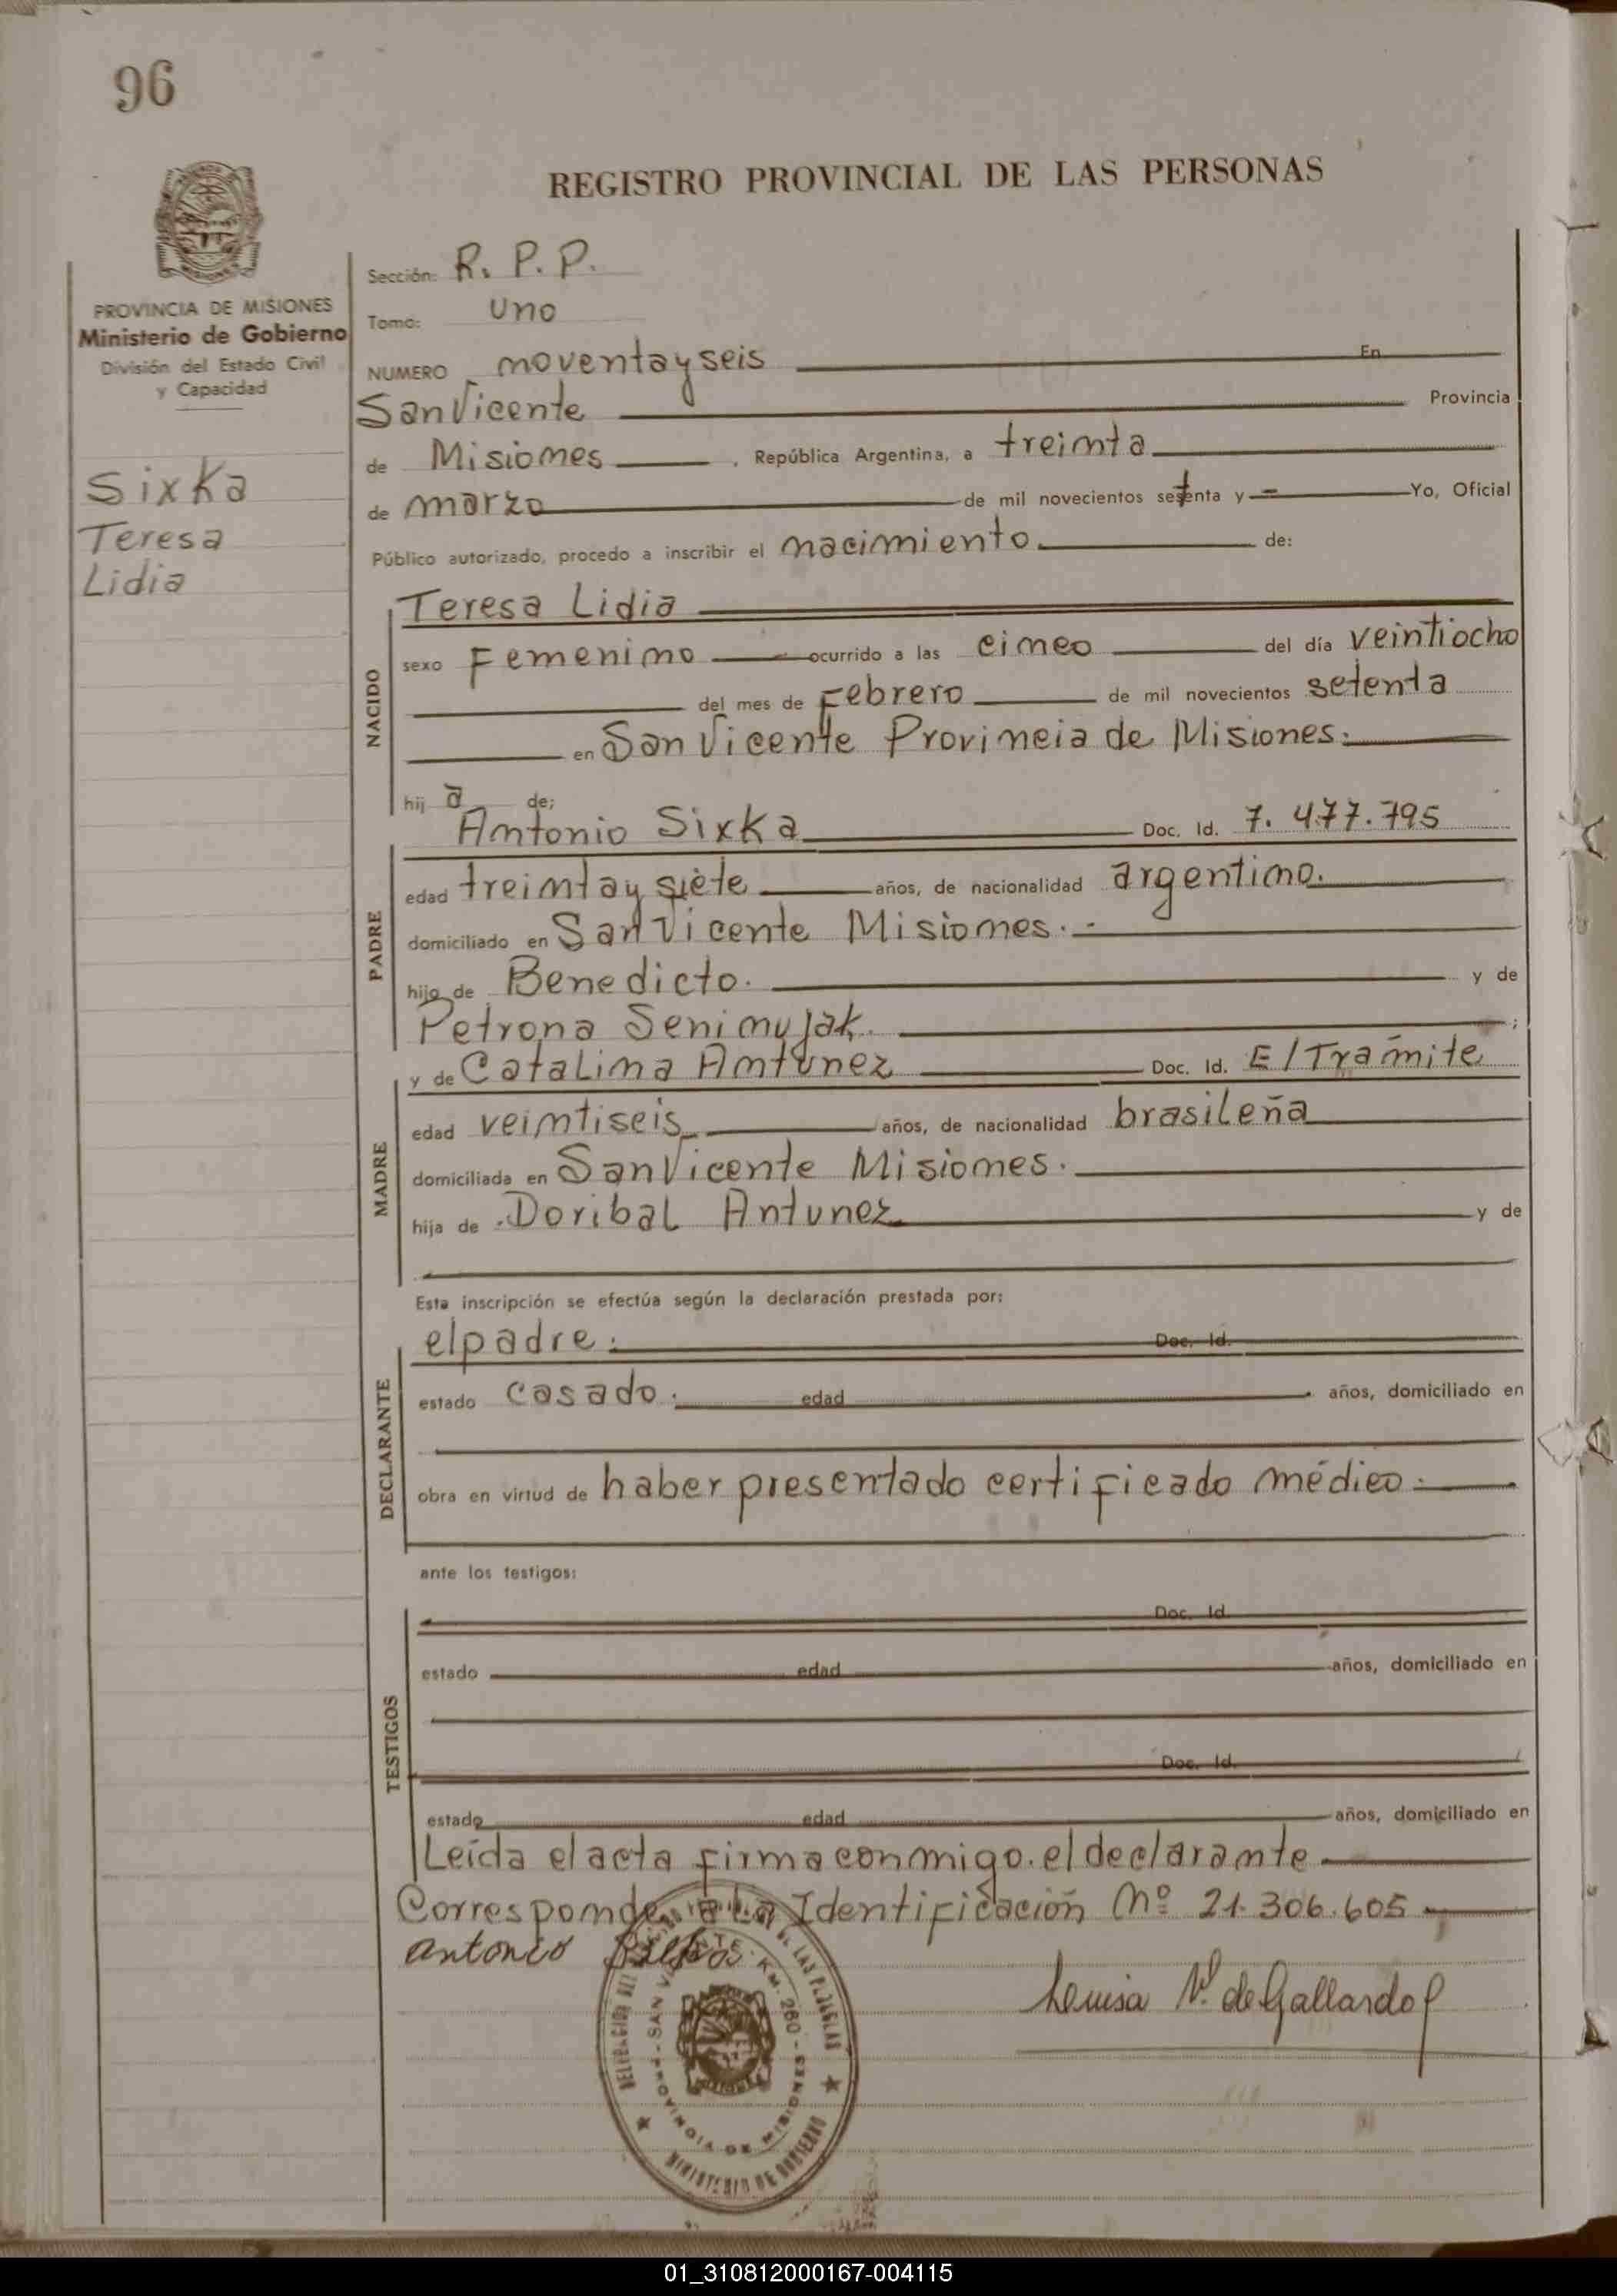 96
REGISTRO PROVINCIAL DE LAS PERSONAS
PROVINCIA DE MISIONES
Ministerio de Gobierno
División del Estado Civil
y Capacidad
Sixka
Teresa
Lidia
Sección: R. P. P.
Tomo: Uno
NUMERO noventa y seis En
San Vicente Provincia
de Misiones , República Argentina, a treinta
de marzo de mil novecientos setenta y - Yo, Oficial
Público autorizado, procedo a inscribir el nacimiento de:
NACIDO
Teresa Lidia
sexo Femenino ocurrido a las cinco del día veintiocho
del mes de Febrero de mil novecientos setenta
en San Vicente Provincia de Misiones.
hij a de;
PADRE
Antonio Sixka Doc. Id. 7.477.795
edad treinta y siete años, de nacionalidad argentino.
domiciliado en San Vicente Misiones. -
hijo de Benedicto. y de
Petrona Senimujak. ;
MADRE
y de Catalina Antunez Doc. Id. E/Tramite
edad veintiseis años, de nacionalidad brasileña
domiciliada en San Vicente Misiones.
hija de Doribal Antunez y de
Esta inscripción se efectúa según la declaración prestada por:
DECLARANTE
el padre. Doc. Id.
estado casado. edad años, domiciliado en
obra en virtud de haber presentado certificado médico.
ante los testigos:
TESTIGOS
Doc. Id.
estado edad años, domiciliado en
Doc. Id.
estado edad años, domiciliado en
Leída el acta firma conmigo. el declarante
Corresponde a la Identificación Nº 21.306.605
Antonio
Luisa V. de Gallardo
DELEGACION DEL REGISTRO PROVINCIAL DE LAS PERSONAS
SAN VICENTE - KM. 260 - PROVINCIA DE MISIONES
MINISTERIO DE GOBIERNO
01_310812000167-004115